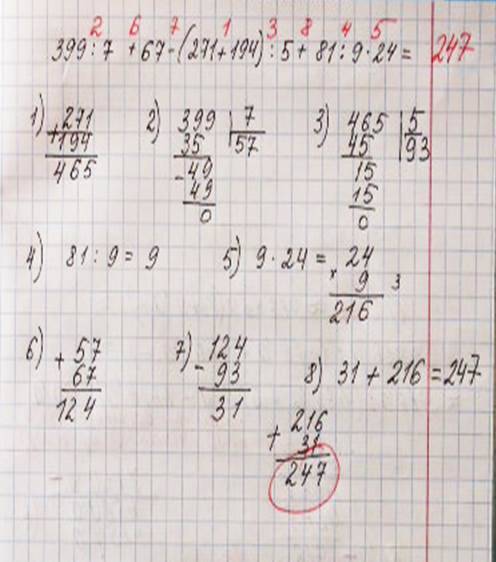 2 6 7 1 3 8 4 5
399 : 7 + 67 - (271 + 194) : 5 + 81 : 9 · 24 = 247
1) 2) 399 | 7 3) 465 | 5
+ 271 35 57 45 93
194 - 49 15
465 49 15
0 0
4) 81 : 9 = 9 5) 9 · 24 = 24
× 9 3
216
6) + 57 7) - 124
67 93 8) 31 + 216 = 247
124 31
+ 216
31
247